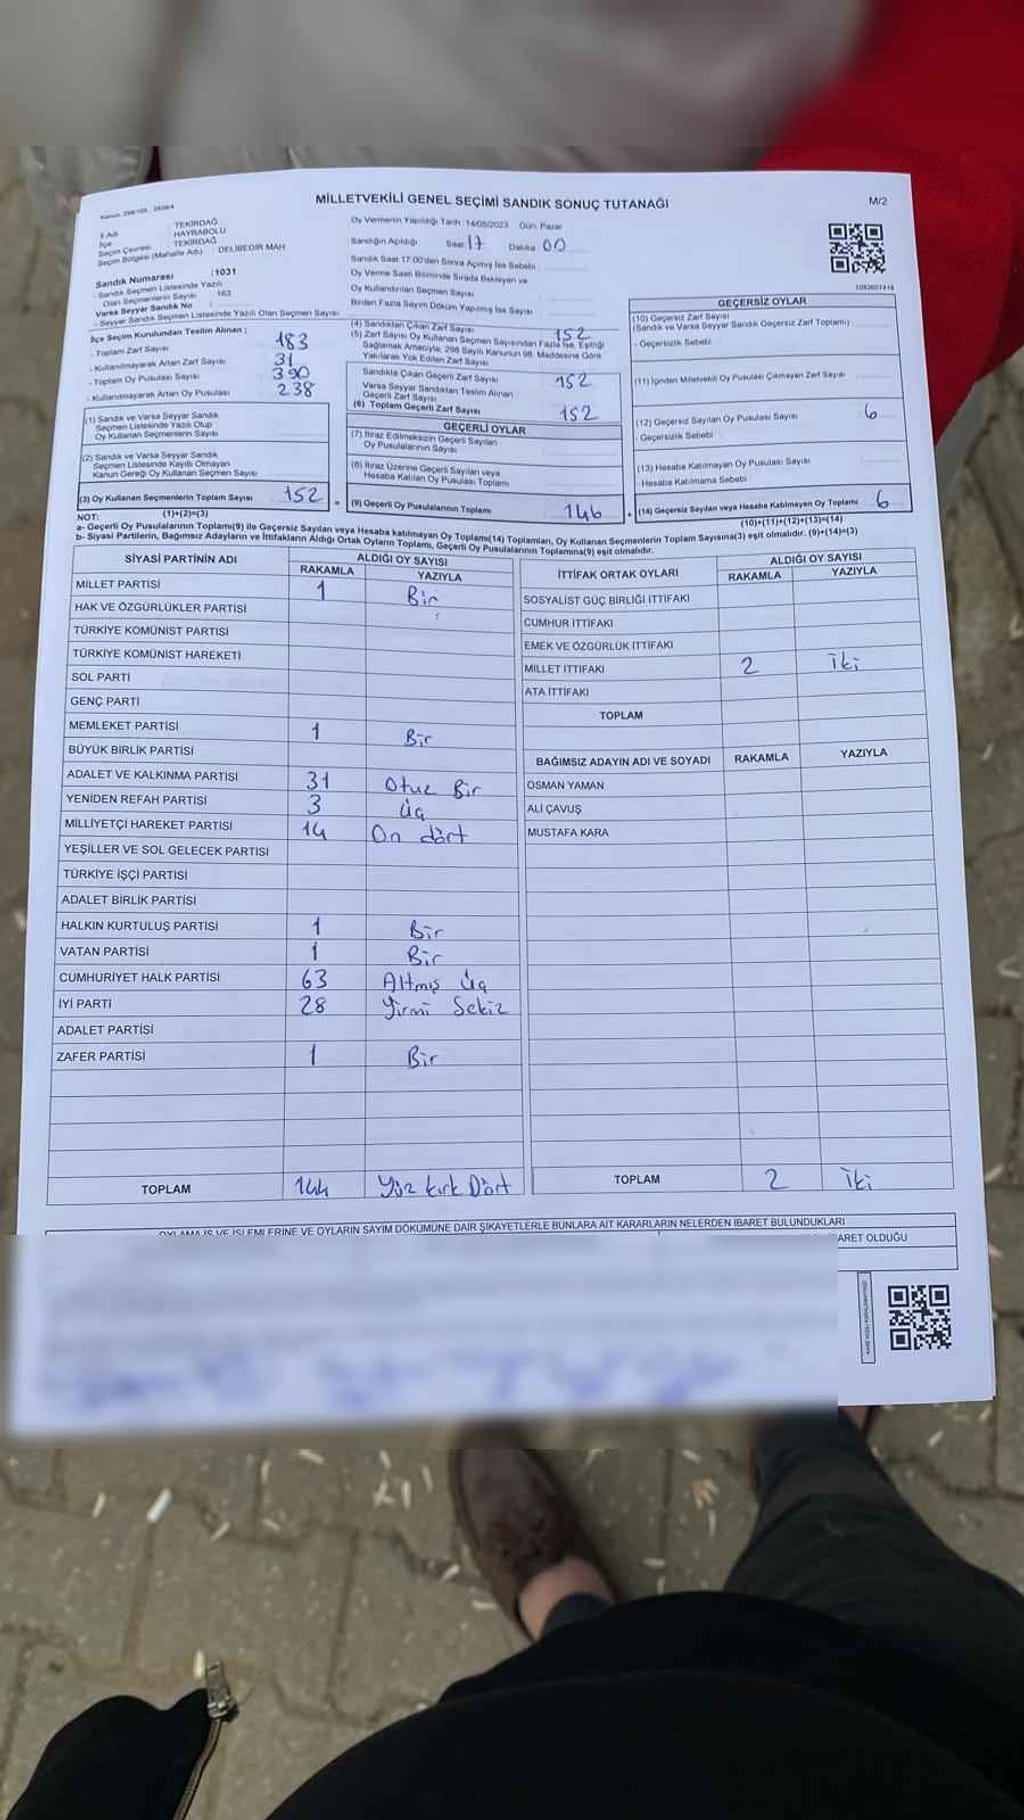 MİLLETVEKİLİ GENEL SEÇİMİ SANDIK SONUÇ TUTANAĞI
M/2
İl Adı : TEKİRDAĞ
İlçe : HAYRABOLU
Seçim Çevresi : TEKİRDAĞ
Seçim Bölgesi (Mahalle Adı) : DELİBEDİR MAH.
Sandık Numarası : 1031
- Sandık Seçmen Listesinde Yazılı
Olan Seçmenlerin Sayısı : 163
Varsa Seyyar Sandık No :
- Seyyar Sandık Seçmen Listesinde Yazılı Olan Seçmen Sayısı
Oy Vermenin Yapıldığı Tarih : 14/05/2023 Gün: Pazar
Sandığın Açıldığı Saat 17 Dakika 00
Sandık Saat 17:00'den Sonra Açılmış İse Sebebi
Oy Verme Saati Bitiminde Sırada Bekleyen ve
Oy Kullandırılan Seçmen Sayısı
Birden Fazla Sayım Döküm Yapılmış İse Sayısı
İlçe Seçim Kurulundan Teslim Alınan ;
- Toplam Zarf Sayısı 183
- Kullanılmayarak Artan Zarf Sayısı 31
- Toplam Oy Pusulası Sayısı 390
- Kullanılmayarak Artan Oy Pusulası 238
(1) Sandık ve Varsa Seyyar Sandık
Seçmen Listesinde Yazılı Olup
Oy Kullanan Seçmenlerin Sayısı
(2) Sandık ve Varsa Seyyar Sandık
Seçmen Listesinde Kayıtlı Olmayan
Kanun Gereği Oy Kullanan Seçmen Sayısı
(3) Oy Kullanan Seçmenlerin Toplam Sayısı 152
(4) Sandıktan Çıkan Zarf Sayısı 152
(5) Zarf Sayısı Oy Kullanan Seçmen Sayısından Fazla İse, Eşitliği
Sağlamak Amacıyla, 298 Sayılı Kanunun 98. Maddesine Göre
Yakılarak Yok Edilen Zarf Sayısı
Sandıkta Çıkan Geçerli Zarf Sayısı 152
Varsa Seyyar Sandıktan Teslim Alınan
Geçerli Zarf Sayısı
(6) Toplam Geçerli Zarf Sayısı 152
GEÇERLİ OYLAR
(7) İtiraz Edilmeksizin Geçerli Sayılan
Oy Pusulalarının Sayısı
(8) İtiraz Üzerine Geçerli Sayılan veya
Hesaba Katılan Oy Pusulası Toplamı
(9) Geçerli Oy Pusulalarının Toplamı 146
GEÇERSİZ OYLAR
(10) Geçersiz Zarf Sayısı
(Sandık ve Varsa Seyyar Sandık Geçersiz Zarf Toplamı)
- Geçersizlik Sebebi
(11) İçinden Milletvekili Oy Pusulası Çıkmayan Zarf Sayısı
(12) Geçersiz Sayılan Oy Pusulası Sayısı 6
- Geçersizlik Sebebi
(13) Hesaba Katılmayan Oy Pusulası Sayısı
- Hesaba Katılmama Sebebi
(14) Geçersiz Sayılan veya Hesaba Katılmayan Oy Toplamı 6
NOT: (1)+(2)=(3)
(10)+(11)+(12)+(13)=(14)
a- Geçerli Oy Pusulalarının Toplamı(9) ile Geçersiz Sayılan veya Hesaba katılmayan Oy Toplamı(14) Toplamları, Oy Kullanan Seçmenlerin Toplam Sayısına(3) eşit olmalıdır. (9)+(14)=(3)
b- Siyasi Partilerin, Bağımsız Adayların ve İttifakların Aldığı Ortak Oyların Toplamı, Geçerli Oy Pusulalarının Toplamına(9) eşit olmalıdır.
SİYASİ PARTİNİN ADI ALDIĞI OY SAYISI
RAKAMLA YAZIYLA
MİLLET PARTİSİ 1 Bir
HAK VE ÖZGÜRLÜKLER PARTİSİ
TÜRKİYE KOMÜNİST PARTİSİ
TÜRKİYE KOMÜNİST HAREKETİ
SOL PARTİ
GENÇ PARTİ
MEMLEKET PARTİSİ 1 Bir
BÜYÜK BİRLİK PARTİSİ
ADALET VE KALKINMA PARTİSİ 31 Otuz Bir
YENİDEN REFAH PARTİSİ 3 Üç
MİLLİYETÇİ HAREKET PARTİSİ 14 On dört
YEŞİLLER VE SOL GELECEK PARTİSİ
TÜRKİYE İŞÇİ PARTİSİ
ADALET BİRLİK PARTİSİ
HALKIN KURTULUŞ PARTİSİ 1 Bir
VATAN PARTİSİ 1 Bir
CUMHURİYET HALK PARTİSİ 63 Altmış Üç
İYİ PARTİ 28 Yirmi Sekiz
ADALET PARTİSİ
ZAFER PARTİSİ 1 Bir
TOPLAM 144 Yüz kırk Dört
İTTİFAK ORTAK OYLARI ALDIĞI OY SAYISI
RAKAMLA YAZIYLA
SOSYALİST GÜÇ BİRLİĞİ İTTİFAKI
CUMHUR İTTİFAKI
EMEK VE ÖZGÜRLÜK İTTİFAKI
MİLLET İTTİFAKI 2 iki
ATA İTTİFAKI
TOPLAM
BAĞIMSIZ ADAYIN ADI VE SOYADI RAKAMLA YAZIYLA
OSMAN YAMAN
ALİ ÇAVUŞ
MUSTAFA KARA
TOPLAM 2 iki
OYLAMA İŞ VE İŞLEMLERİNE VE OYLARIN SAYIM DÖKÜMÜNE DAİR ŞİKAYETLERLE BUNLARA AİT KARARLARIN NELERDEN İBARET BULUNDUKLARI
BARET OLDUĞU